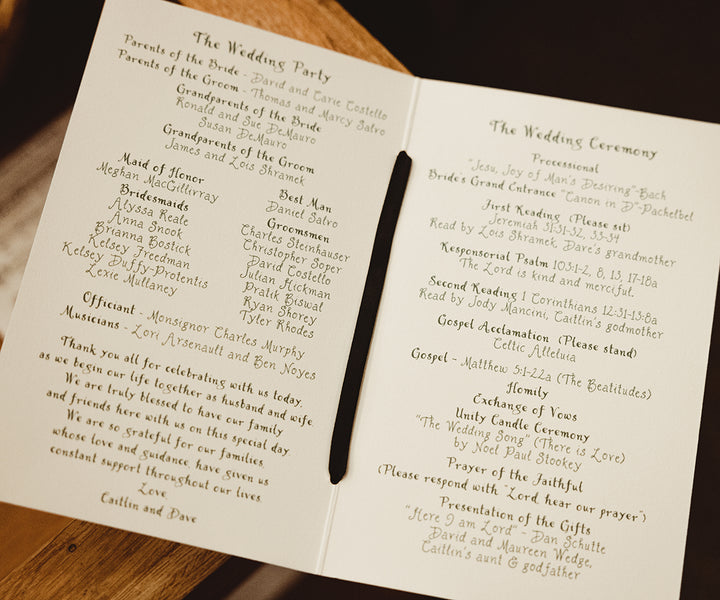 The Wedding Party
Parents of the Bride - David and Carie Costello
Parents of the Groom - Thomas and Marcy Salvo
Grandparents of the Bride
Ronald and Sue DeMauro
Susan DeMauro
Grandparents of the Groom
James and Lois Shramek
Maid of Honor
Meghan MacGillivray
Bridesmaids
Alyssa Reale
Anna Snook
Brianna Bostick
Kelsey Freedman
Kelsey Duffy-Protentis
Lexie Mullaney
Best Man
Daniel Salvo
Groomsmen
Charles Steinhauser
Christopher Soper
David Costello
Julian Hickman
Pratik Biswal
Ryan Shorey
Tyler Rhodes
Officiant - Monsignor Charles Murphy
Musicians - Lori Arsenault and Ben Noyes
Thank you all for celebrating with us today,
as we begin our life together as husband and wife.
We are truly blessed to have our family
and friends here with us on this special day.
We are so grateful for our families,
whose love and guidance, have given us
constant support throughout our lives.
Love,
Caitlin and Dave
The Wedding Ceremony
Processional
"Jesu, Joy of Man's Desiring"-Bach
Bride's Grand Entrance "Canon in D"-Pachelbel
First Reading (Please sit)
Jeremiah 31:31-32, 33-34
Read by Lois Shramek, Dave's grandmother
Responsorial Psalm 103:1-2, 8, 13, 17-18a
The Lord is kind and merciful.
Second Reading 1 Corinthians 12:31-13:8a
Read by Jody Mancini, Caitlin's godmother
Gospel Acclamation (Please stand)
Celtic Alleluia
Gospel - Matthew 5:1-22a (The Beatitudes)
Homily
Exchange of Vows
Unity Candle Ceremony
"The Wedding Song" (There is Love)
by Noel Paul Stookey
Prayer of the Faithful
(Please respond with "Lord, hear our prayer")
Presentation of the Gifts
"Here I am Lord" - Dan Schutte
David and Maureen Wedge,
Caitlin's aunt & godfather